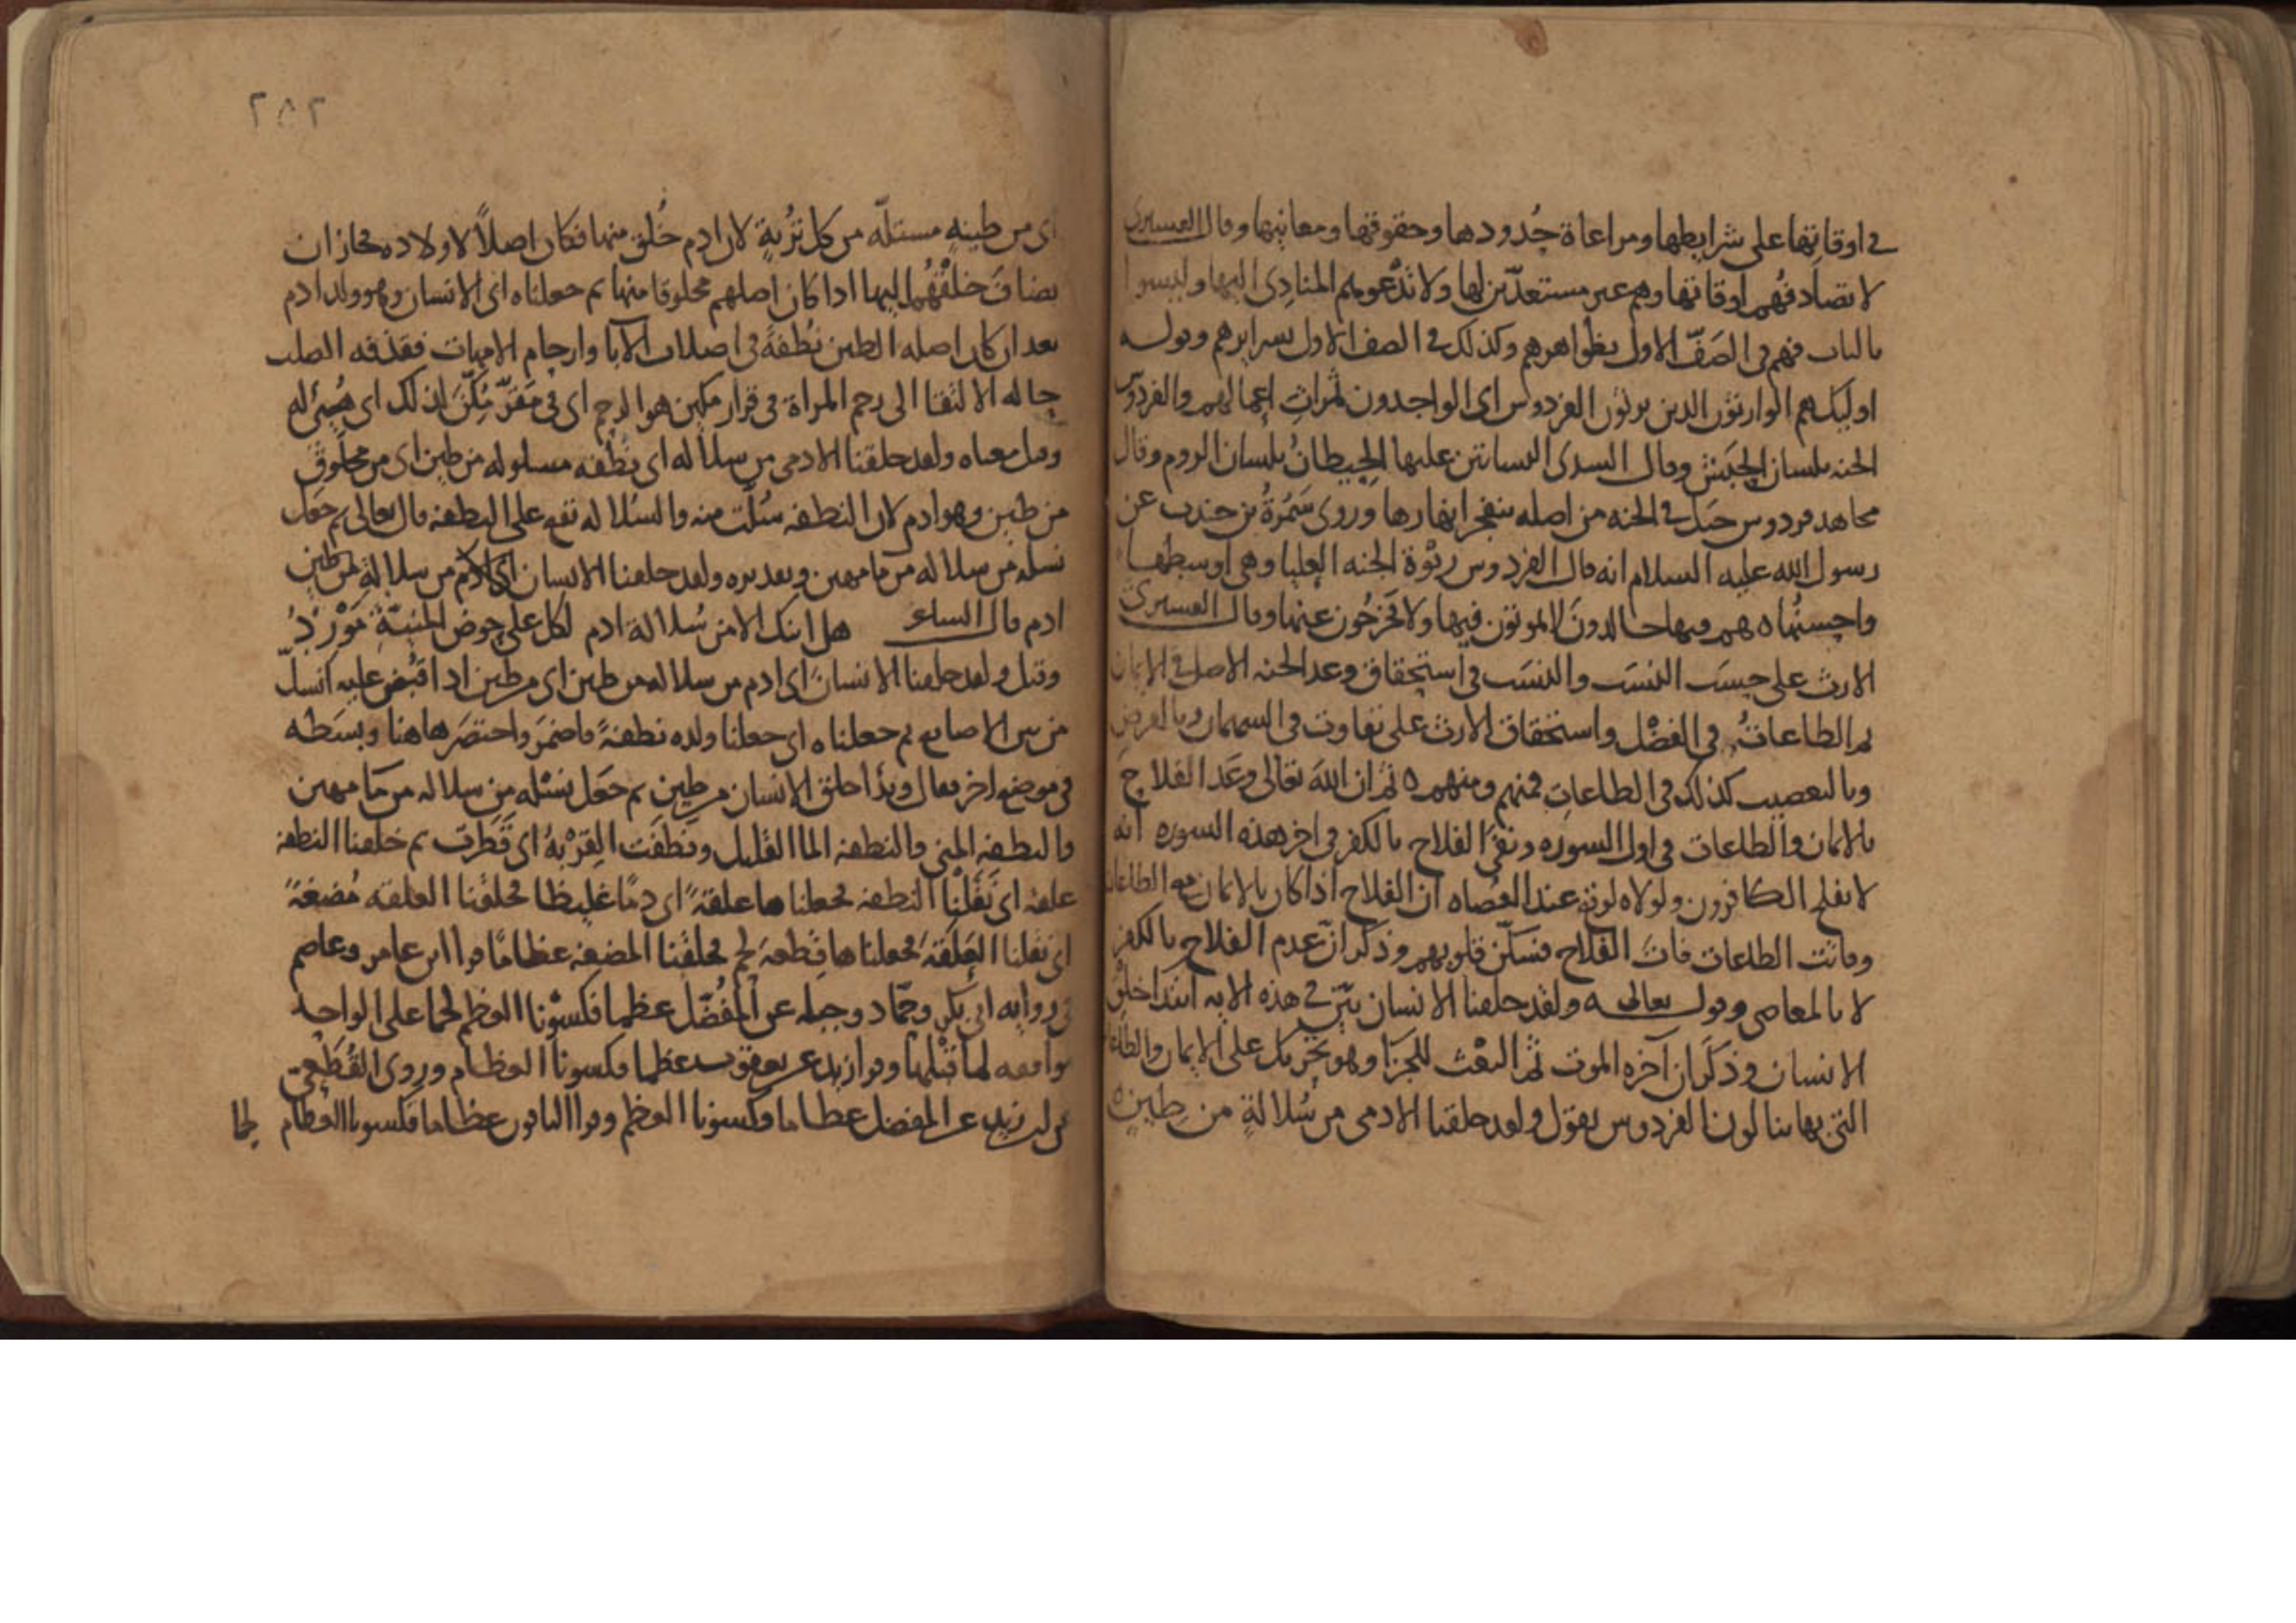 في اوقاتها على شرايطها ومراعاة حُدودها وحقوقها ومعانيها وقال القسيرى
لا تصادفُهم اوقاتها وهم غير مستعدّين لها ولا تدْعوهم المنادى اليها وليسوا
بالباب فهم في الصَفّ الاول بظواهرهم وكذلك في الصف الاول بسرايرهم وقوله
اوليك هم الوارثون الذين يرثون الفردوس اى الواجدون ثمراتِ اعمالهم والفردوس
الجنه بلسان الحبَش وقال السدى البساتين عليها الحيطانُ بلسان الروم وقال
مجاهد فردوس جبَل في الجنه من اصله ينفجر انهارها وروى سَمُرَةُ بن جندب عن
رسول الله عليه السلام انه قال الفردوس ربْوة الجنه العليا وهى اوسطها
واحسنُها ه هم فيها خالدونَ لا يموتون فيها ولا يخرُجون عنها وقال القسيرى
الارث على حسَب النسَب والنسَب في استحقاق وعد الجنه الاصل في الايمان
ثم الطاعاتُ في الفضْل واستحقاق الارث على تفاوت في السهمان وبالفرض
وبالتعصيب كذلك في الطاعاتِ فمنهم ومنهم ه ثم ان اللهَ تعالى وعَد الفلاحَ
بالايمان والطاعات في اول السوره ونفَى الفلاح بالكفر في اخر هذه السوره انه
لا يفلح الكافرون ولولاه لوقع عند العُصاه ان الفلاح اذا كان بالايمان مع الطاعات
وفاتت الطاعات فات الفلاح فسكّن قلوبهم وذكر انّ عدم الفلاح بالكفر
لا بالمعاصى وقوله تعالى ه ولقد خلقنا الانسان بيّن في هذه الايه ابتدا خلْق
الانسان وذكَر ان آخره الموت ثم البعْث للجزَا وهو تحْريك على الايمان والطاعات
التى بها ينالون الفردوس يقول ولقد خلقنا الادمى من سُلالةٍ من طِينٍ ه
٢٨٢
اى من طينهٍ مستلّه من كل تُرْبةٍ لان ادم خُلق منها فكان اصلاً لاولاده فجاز ان
يضافَ خلقُهم اليها اذا كان اصلهم مخلوقا منها ثم جعلناه اى الانسان وهو ولد ادم
بعد ان كان اصله الطين نُطْفةً في اصلاب الآبا وارحام الامهات فقذفه الصلب
حاله الالتقا الى رحم المراة في قرار مكين هو الرحم اى في مَقرّ مُكِّنَ لذلك اى هُيّئ له
وقيل معناه ولقد خلقنا الادمى من سلاله اى نُطْفه مسلوله من طين اى من مخلوق
من طين وهو ادم لان النطفه سُلّت منه والسُلاله تقع على النطفه قال تعالى ثم جعَل
نسله من سلاله من ما مهين وتقديره ولقد خلقنا الانسان اى الادم من سلالةٍ من طين
ادم قال الساعر هل انتك الا من سُلالة ادم لكل على حوض المنيّةِ مَوْرِدُ
وقيل ولقد خلقنا الانسانَ اى ادم من سلاله من طين اى من طين اذا قُبض عليه انسلّ
من بين الاصابع ثم جعلناه اى جعلنا ولده نطفةً فاضمَر واختصَر هاهنا وبسَطه
في موضع اخر فقال وبدأ خلق الانسان من طين ثم جعَل نسْله من سلاله من ما مهين
والنطفه المنى والنطفه الما القليل ونطَفَت القِرْبهُ اى قَطَرت ثم خلقنا النطفه
علقه اى نَقَلْنا النطفه فجعلناها علقةً اى دمًا غليظا فخلقنا العلقه مُضغةً
اى نقلنا العَلَقهَ فجعلناها قِطعه لحم فخلقنا المضغه عظامًا قرا ابن عامر وعاصم
في روايه ابى بكر وحمّاد وجبله عن المُفَضّل عظما فكسَوْنا العظم لحما على الواحد
موافقه لما قبْلها وقرا زيد عن يعقوب عظما فكسونا العظام وروى القُطَعِى
عن ابى زيد عن المفضل عظاما فكسونا العظم وقرا الباقون عظاما فكسونا العظام لحما